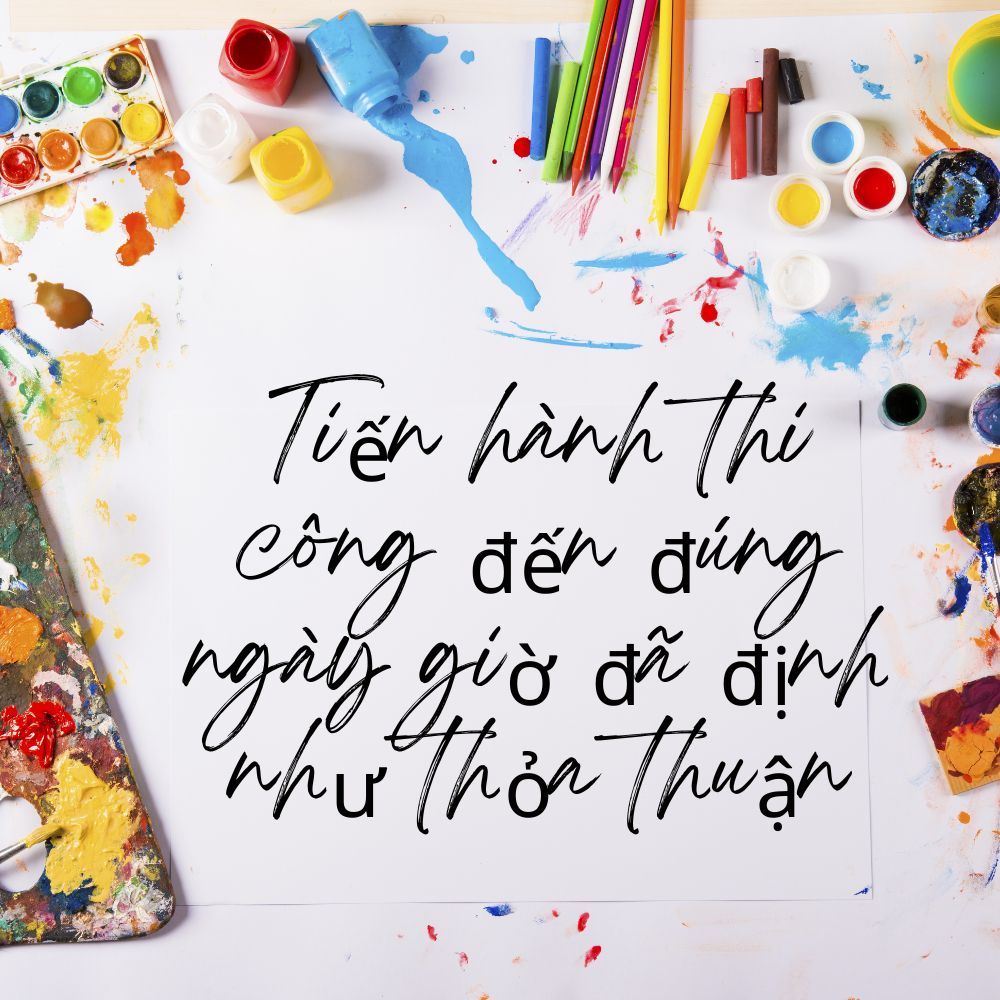 Tiến hành thi
công đến đúng
ngày giờ đã định
như thỏa thuận